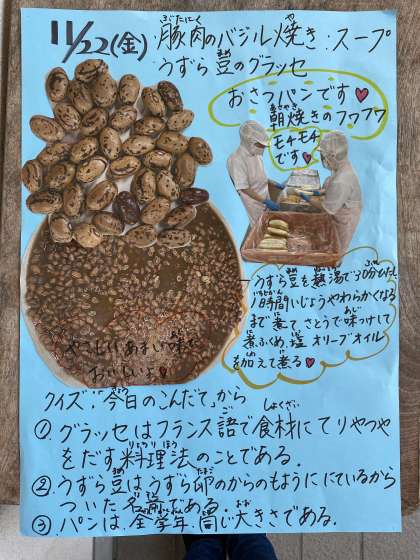 11/22(金) 豚肉のバジル焼き・スープ
うずら豆のグラッセ
おさつパンです♥
朝焼きのフワフワ
モチモチ
です♥
うずら豆を熱湯で30分ひたし
1時間いじょうやわらかくなる
まで煮て さとうで味つけして
煮ふくめ、塩 オリーブオイル
を加えて煮る♥
やさしいあまい味で
おいしいよ♥
クイズ:「今日のこんだて」から
① グラッセはフランス語で食材にてりやつや
をだす料理法のことである.
② うずら豆はうずら卵のからのもようににているから
ついた名前である.
③ パンは、全学年、同じ大きさである.